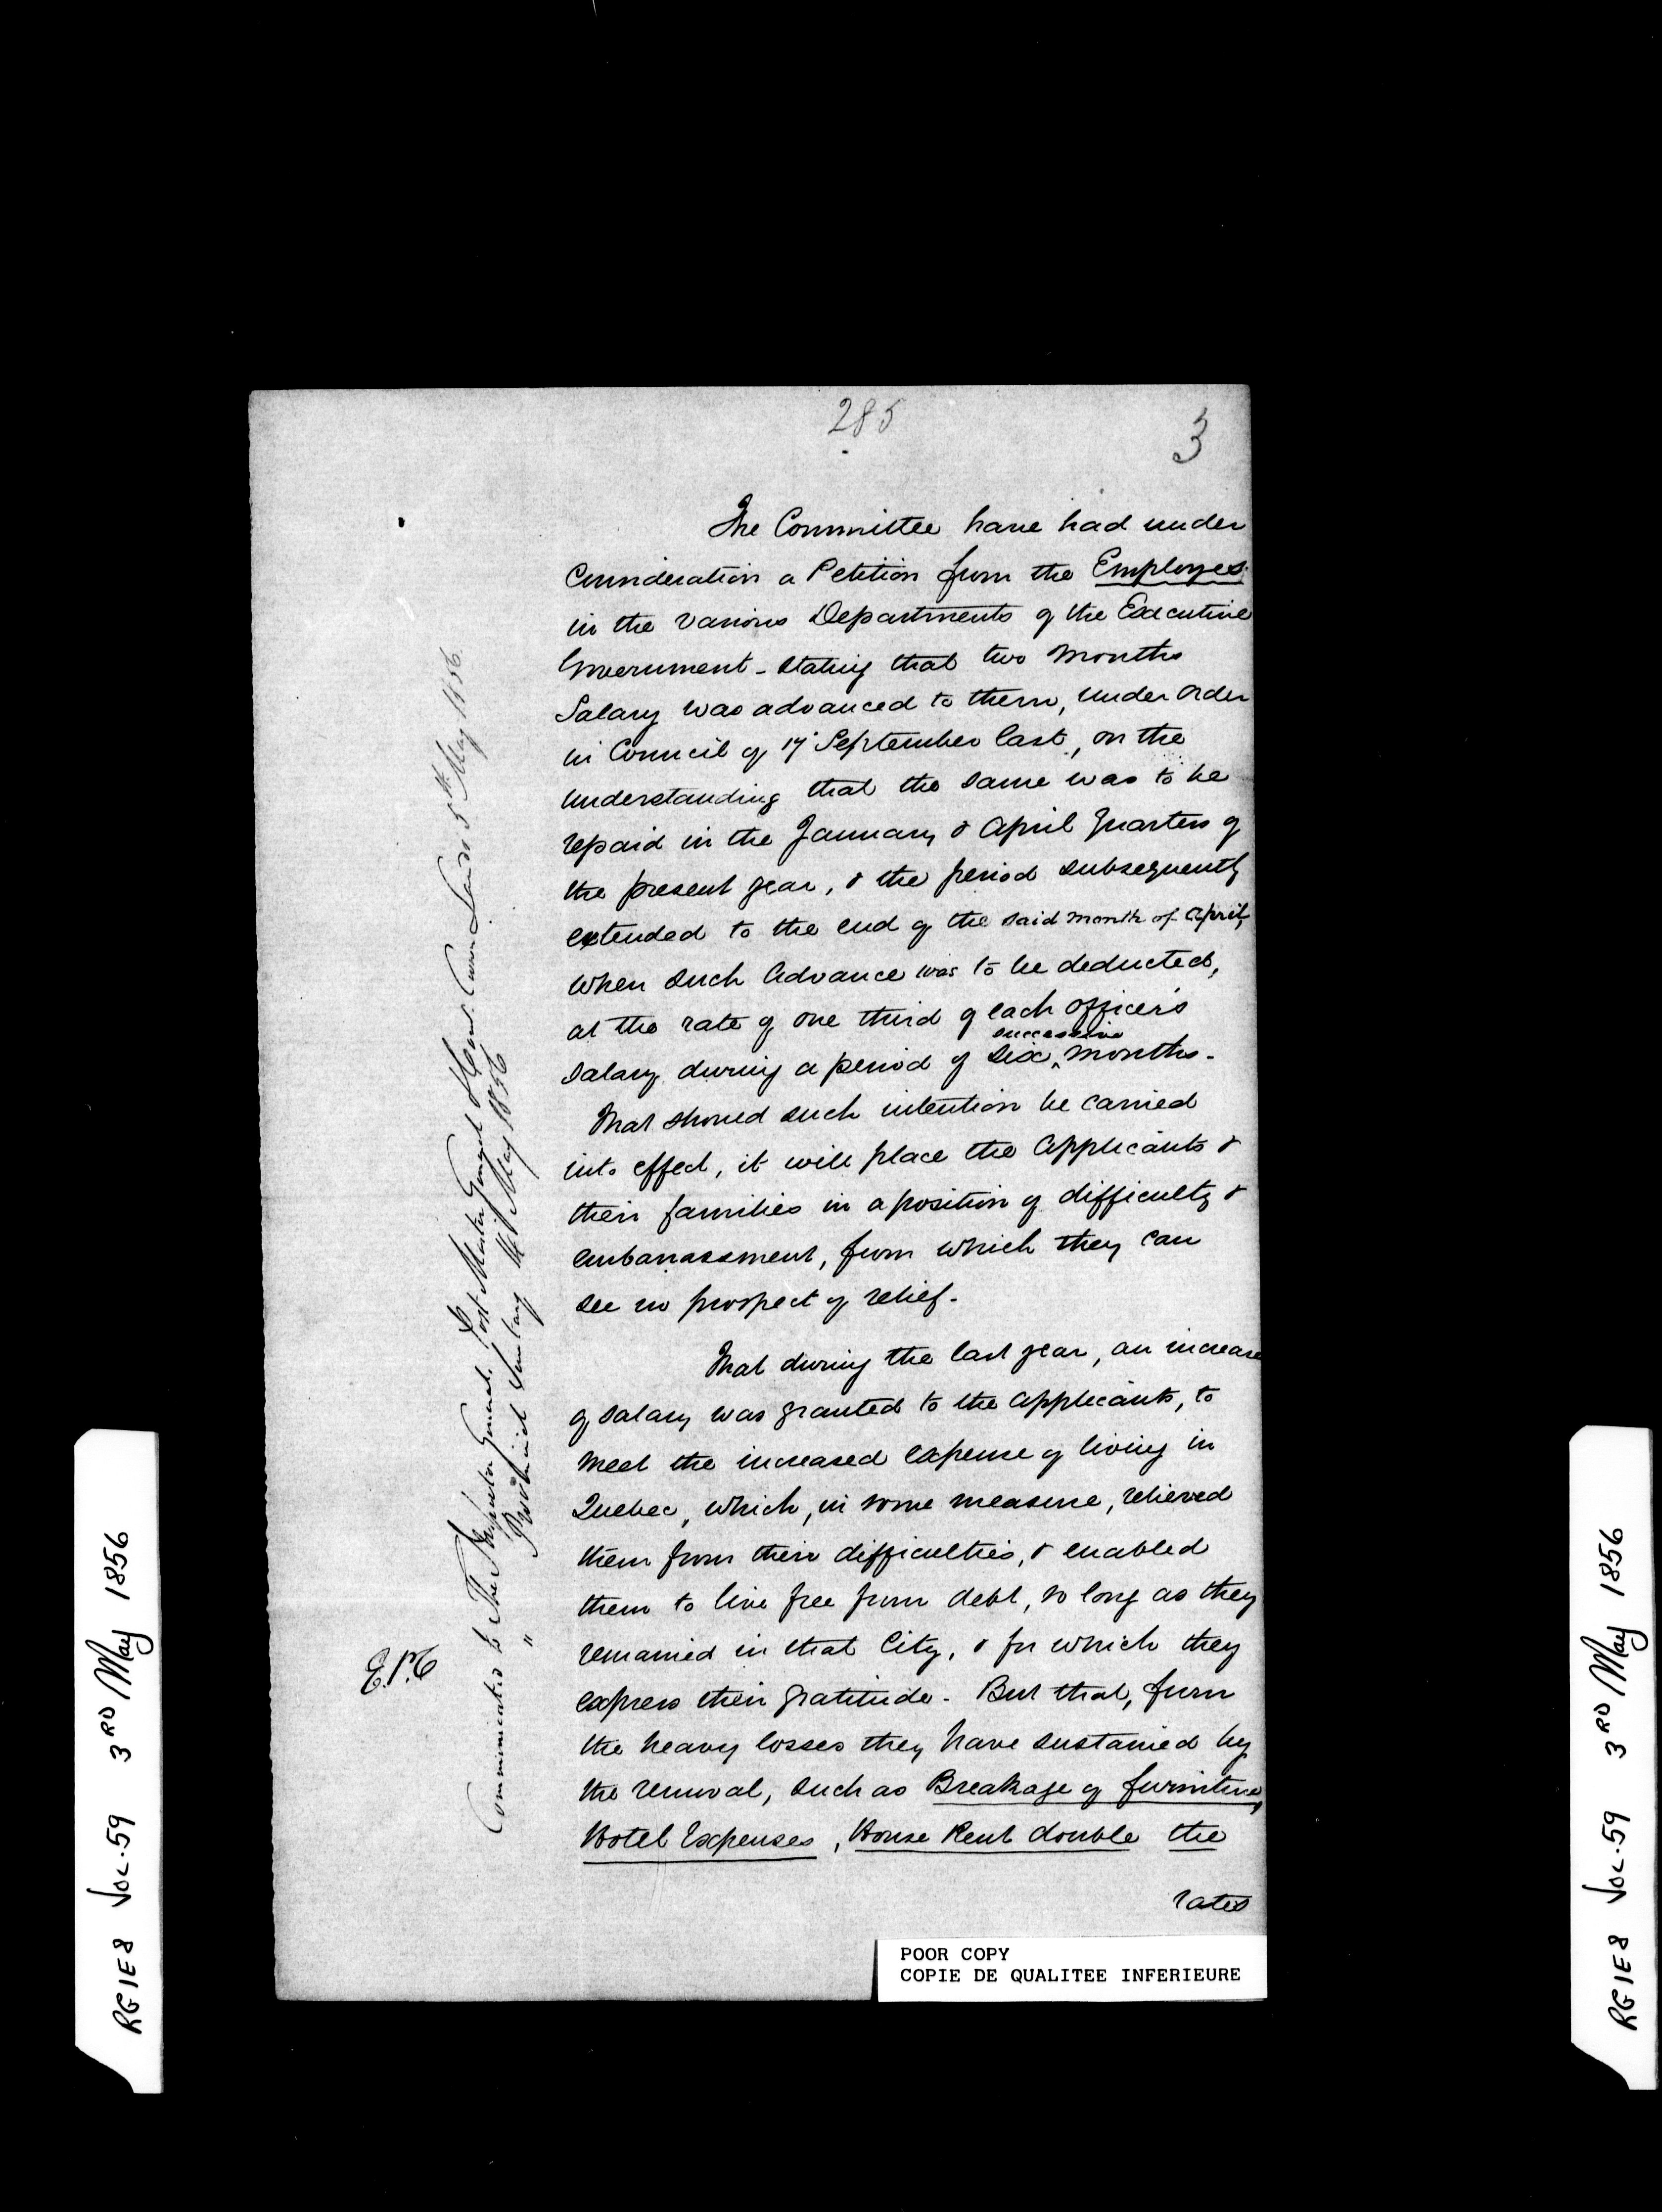 285
3
The Committee have had under
Consideration a Petition from the Employes
in the various Departments of the Executive
Government - stating that two Months
Salary was advanced to them, under Order
in Council of 17 September last, on the
understanding that the same was to be
repaid in the January & April Quarters of
the present year, & the period subsequently
extended to the end of the said month of April,
when such Advance was to be deducted,
at the rate of one third of each officer's
successive
salary during a period of six ^ months -
That should such intention be carried
into effect, it will place the Applicants &
their families in a position of difficulty &
embarrassment, from which they can
see no prospect of relief -
That during the last year, an increase
of salary was granted to the applicants, to
meet the increased expense of living in
Quebec, which, in some measure, relieved
them from their difficulties, & enabled
them to live free from debt, so long as they
remained in that City, & for which they
express their gratitude - But that, from
the heavy losses they have sustained by
the removal, such as Breakage of furniture,
Hotel Expenses, House Rent double the
rates
Communicated to The Inspector General, Post Master General & Hon. 5th May 1856
" Provincial Secretary May 1856
POOR COPY
COPIE DE QUALITEE INFERIEURE
RG1E8 VOL.59 3RD May 1856
RG1E8 VOL.59 3RD May 1856